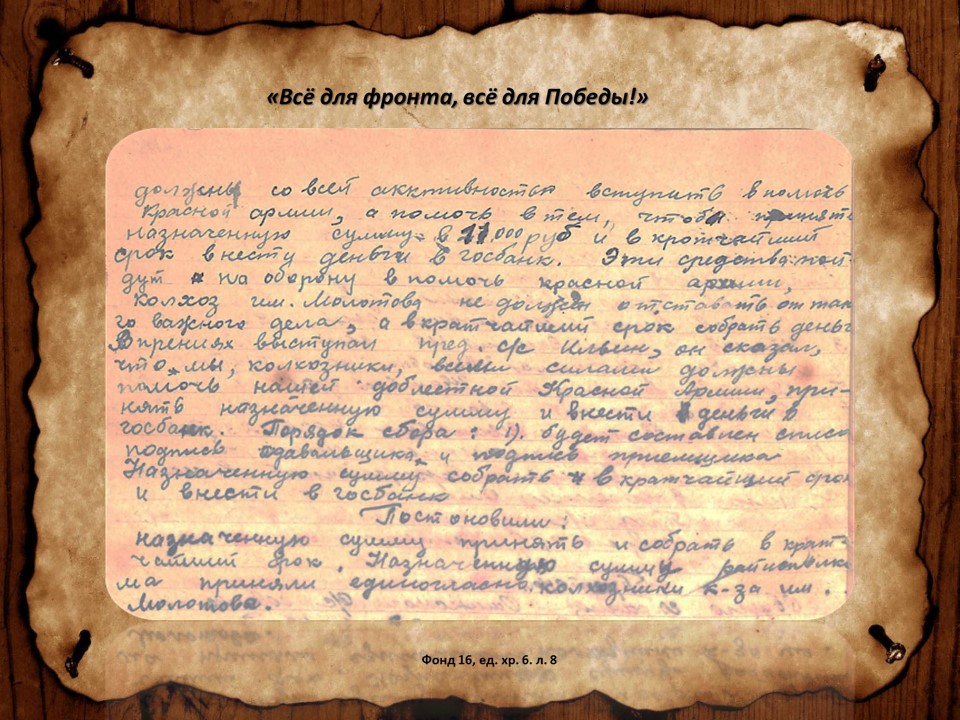 «Всё для фронта, всё для Победы!»
должны со всей акктивностью вступать в помочь
Красной армии, а помочь в тем, чтобы принять
назначенную сумму в 11.000 руб и в кротчайший
срок внесту деньги в госбанк. Эти средства пой-
дут на оборону в помочь красной армии,
колхоз им. Молотова не должен отставать от так
го важного дела, а в кратчайший срок собрать деньг
В прениях выступал пред. с/с Ильин, он сказал,
что мы, колхозники, всеми силами должны
помочь нашей доблестной Красной Армии, при-
нять назначенную сумму и внести деньги в
госбанк. Порядок сбора: 1). будет составлен списо
подпись сдавальщика и подпись приемщика
Назначенную сумму собрать в кратчайщий срок
и внести в госбанк
Постоновили:
назначенную сумму принять и собрать в крат-
чайший срок. Назначенную сумму
ма приняли единогласно колхозники к-за им.
Молотова.
Фонд 16, ед. хр. 6. л. 8